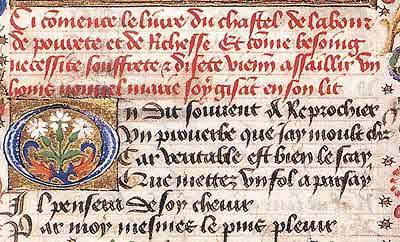 Ci comence le liure du chastel de labour
de pourete et de Richesse Et come besoing
necessite souffrete & disete vienn assaillir vn
home nouuel marie soy gisat en son lit
On dit souvent & Reprochier
Un prouerbe que jay moult chr
Car veritable est bien le scay
Que mettez vn fol a par say
Il pensera de soy cheuir
Par moy mesmes le puis pleuir